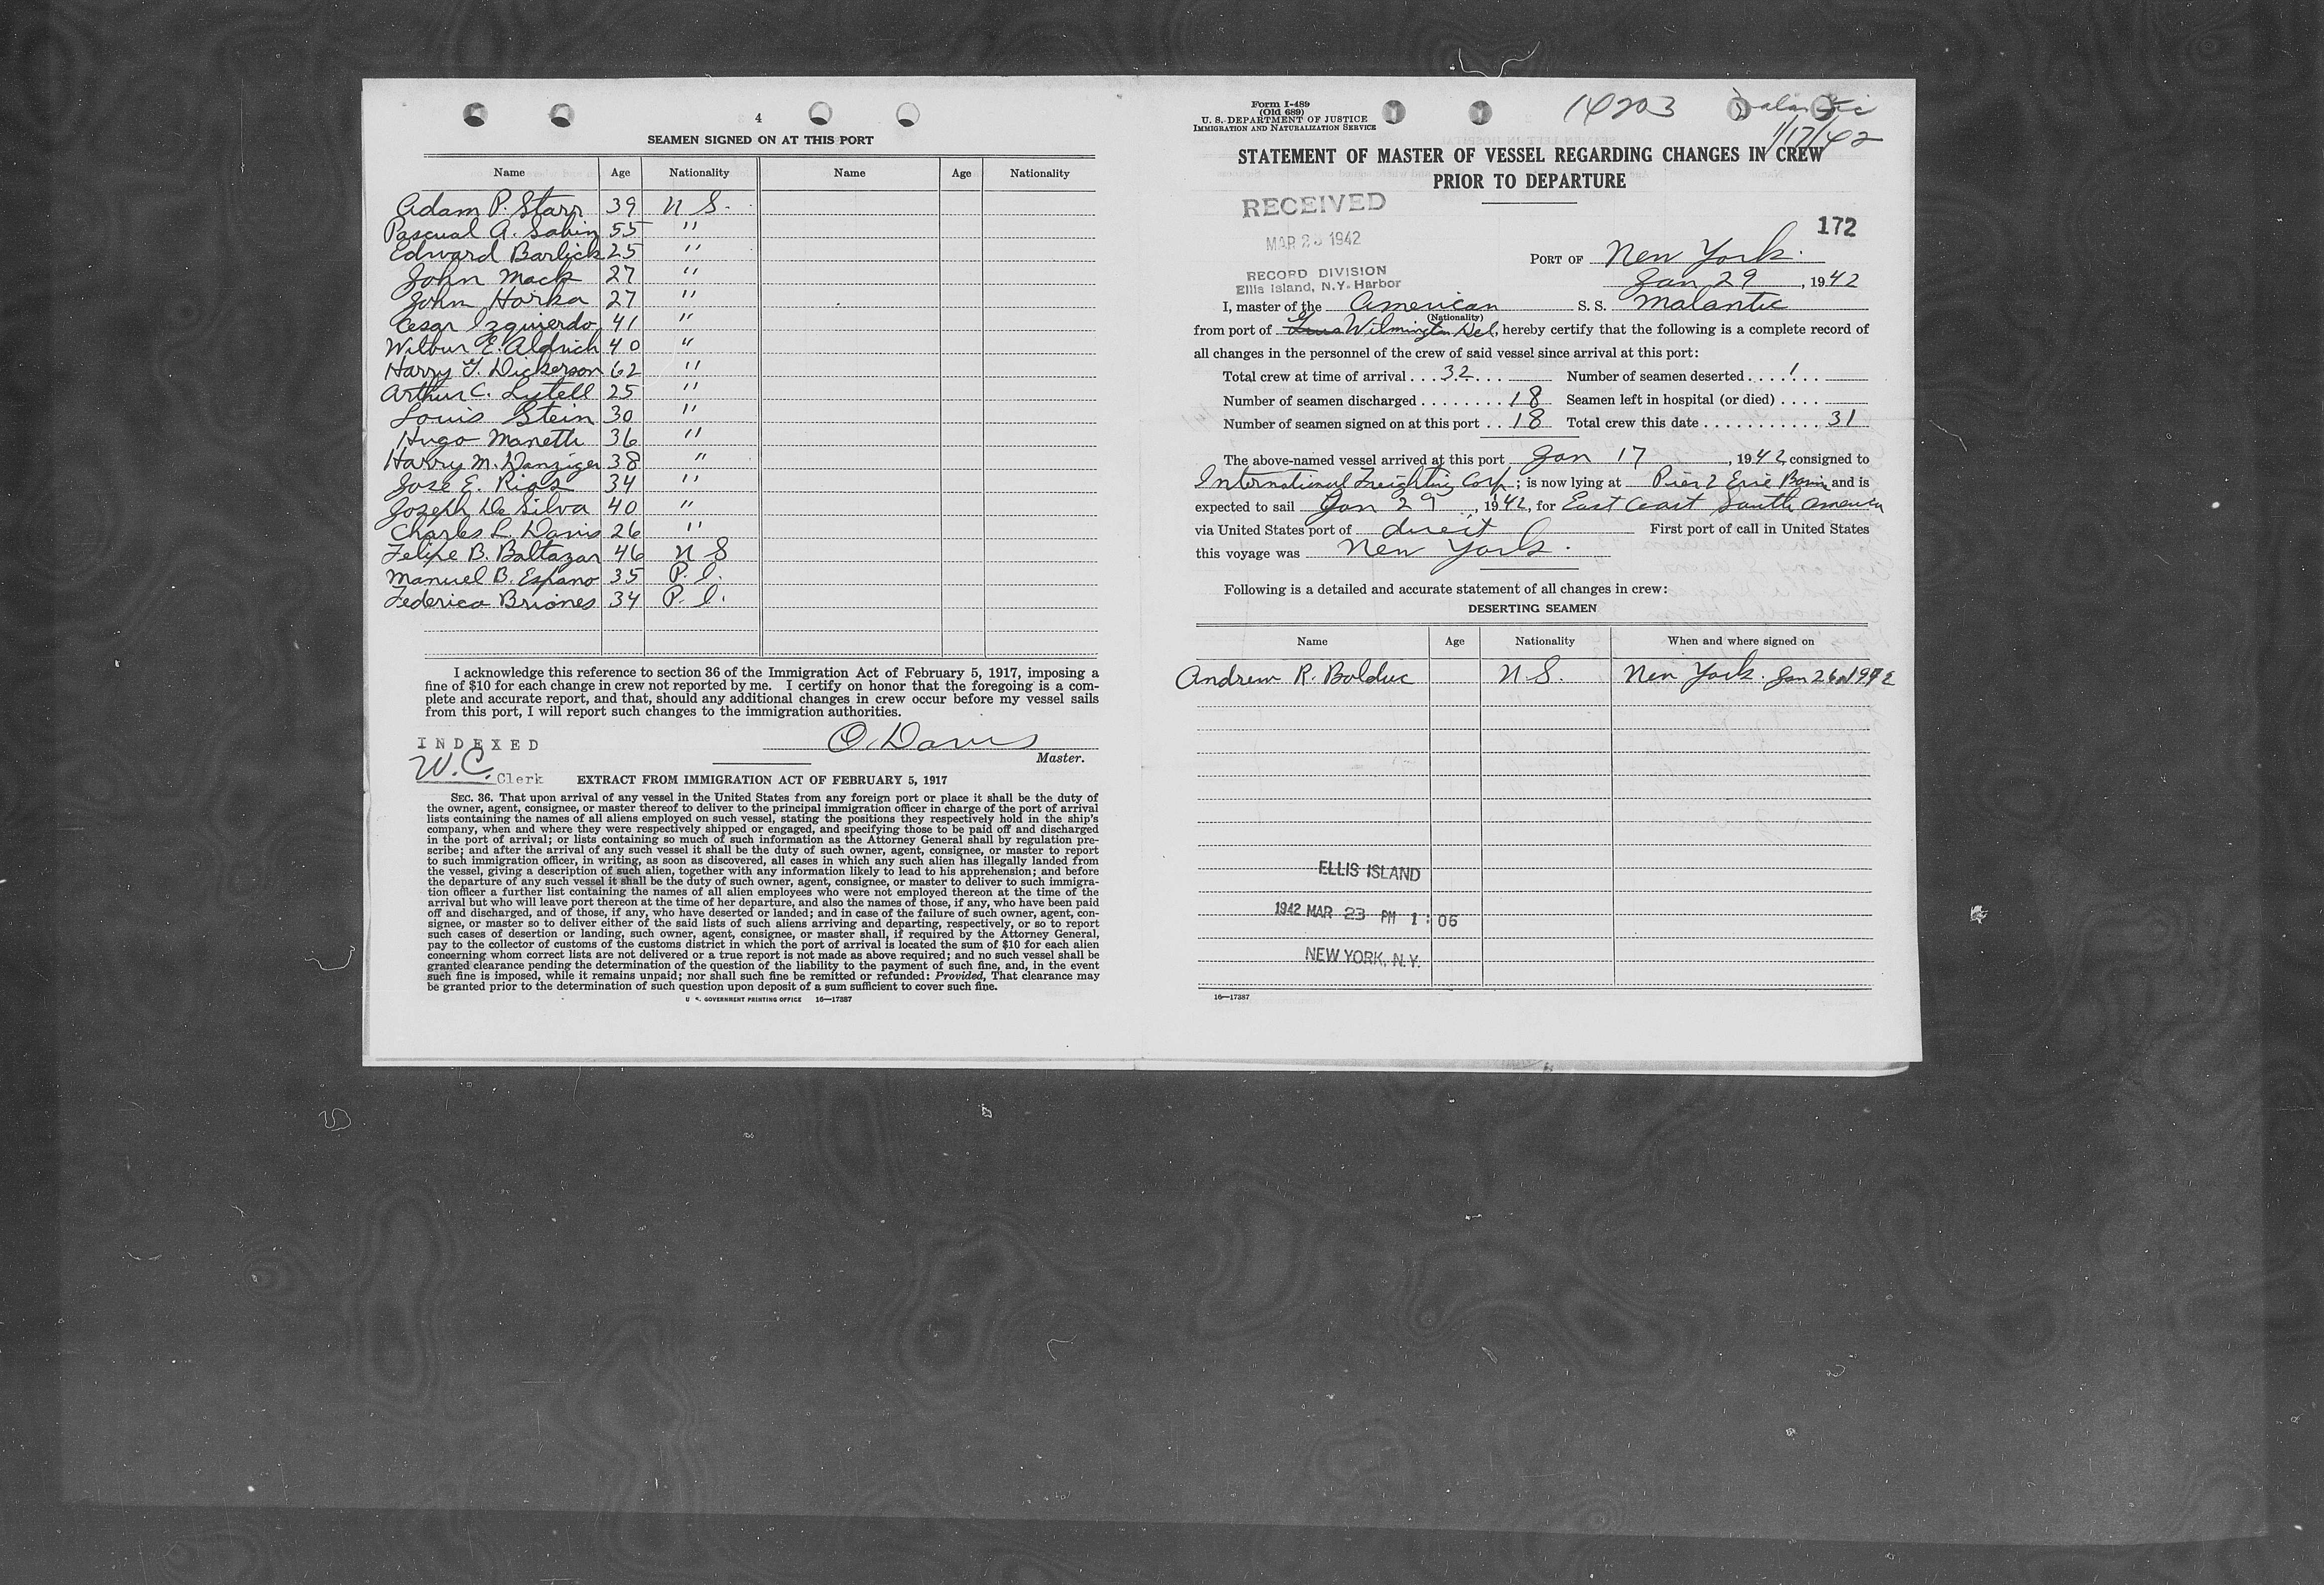 4
SEAMEN SIGNED ON AT THIS PORT
Name Age Nationality Name Age Nationality
Adam P. Starr 39 U S.
Pascual A. Sabin 55 "
Edward Barlick 25 "
John Mack 27 "
John Horka 27 "
Cesar Izquierdo 41 "
Wilbur E. Aldrich 40 "
Harry Y. Dickerson 62 "
Arthur C. Lytell 25 "
Louis Stein 30 "
Hugo Manetti 36 "
Harry M. Danziger 38 "
Jose E. Rios 34 "
Joseph De Silva 40 "
Charles L. Davis 26 "
Felipe B. Baltazar 46 U S
Manuel B. Espano 35 P. I.
Federico Briones 34 P. I.
I acknowledge this reference to section 36 of the Immigration Act of February 5, 1917, imposing a
fine of $10 for each change in crew not reported by me. I certify on honor that the foregoing is a com-
plete and accurate report, and that, should any additional changes in crew occur before my vessel sails
from this port, I will report such changes to the immigration authorities.
INDEXED
O. Davis
Master.
W.C. Clerk
EXTRACT FROM IMMIGRATION ACT OF FEBRUARY 5, 1917
SEC. 36. That upon arrival of any vessel in the United States from any foreign port or place it shall be the duty of
the owner, agent, consignee, or master thereof to deliver to the principal immigration officer in charge of the port of arrival
lists containing the names of all aliens employed on such vessel, stating the positions they respectively hold in the ship's
company, when and where they were respectively shipped or engaged, and specifying those to be paid off and discharged
in the port of arrival; or lists containing so much of such information as the Attorney General shall by regulation pre-
scribe; and after the arrival of any such vessel it shall be the duty of such owner, agent, consignee, or master to report
to such immigration officer, in writing, as soon as discovered, all cases in which any such alien has illegally landed from
the vessel, giving a description of such alien, together with any information likely to lead to his apprehension; and before
the departure of any such vessel it shall be the duty of such owner, agent, consignee, or master to deliver to such immigra-
tion officer a further list containing the names of all alien employees who were not employed thereon at the time of the
arrival but who will leave port thereon at the time of her departure, and also the names of those, if any, who have been paid
off and discharged, and of those, if any, who have deserted or landed; and in case of the failure of such owner, agent, con-
signee, or master so to deliver either of the said lists of such aliens arriving and departing, respectively, or so to report
such cases of desertion or landing, such owner, agent, consignee, or master shall, if required by the Attorney General,
pay to the collector of customs of the customs district in which the port of arrival is located the sum of $10 for each alien
concerning whom correct lists are not delivered or a true report is not made as above required; and no such vessel shall be
granted clearance pending the determination of the question of the liability to the payment of such fine, and, in the event
such fine is imposed, while it remains unpaid; nor shall such fine be remitted or refunded: Provided, That clearance may
be granted prior to the determination of such question upon deposit of a sum sufficient to cover such fine.
U. S. GOVERNMENT PRINTING OFFICE 16—17387
Form I-489
(Old 689)
U. S. DEPARTMENT OF JUSTICE
IMMIGRATION AND NATURALIZATION SERVICE
14203
1/17/42
STATEMENT OF MASTER OF VESSEL REGARDING CHANGES IN CREW
PRIOR TO DEPARTURE
RECEIVED
MAR 23 1942
RECORD DIVISION
Ellis Island, N.Y. Harbor
172
PORT OF New York.
Jan 29, 1942
I, master of the American S. S. Malantic
(Nationality)
from port of Wilmington Del, hereby certify that the following is a complete record of
all changes in the personnel of the crew of said vessel since arrival at this port:
Total crew at time of arrival . . . 32 . . . Number of seamen deserted . . . . 1 . .
Number of seamen discharged . . . . . . . . 18 Seamen left in hospital (or died) . . . .
Number of seamen signed on at this port . . 18 Total crew this date . . . . . . . . . . . 31
The above-named vessel arrived at this port Jan 17, 1942, consigned to
International Freighting Corp; is now lying at Pier 2 Erie Basin and is
expected to sail Jan 29, 1942, for East Coast South America
via United States port of direct First port of call in United States
this voyage was New York.
Following is a detailed and accurate statement of all changes in crew:
DESERTING SEAMEN
Name Age Nationality When and where signed on
Andrew R. Bolduc U.S. New York. Jan 26 1942
ELLIS ISLAND
1942 MAR 23 PM 1:06
NEW YORK, N.Y.
16—17387